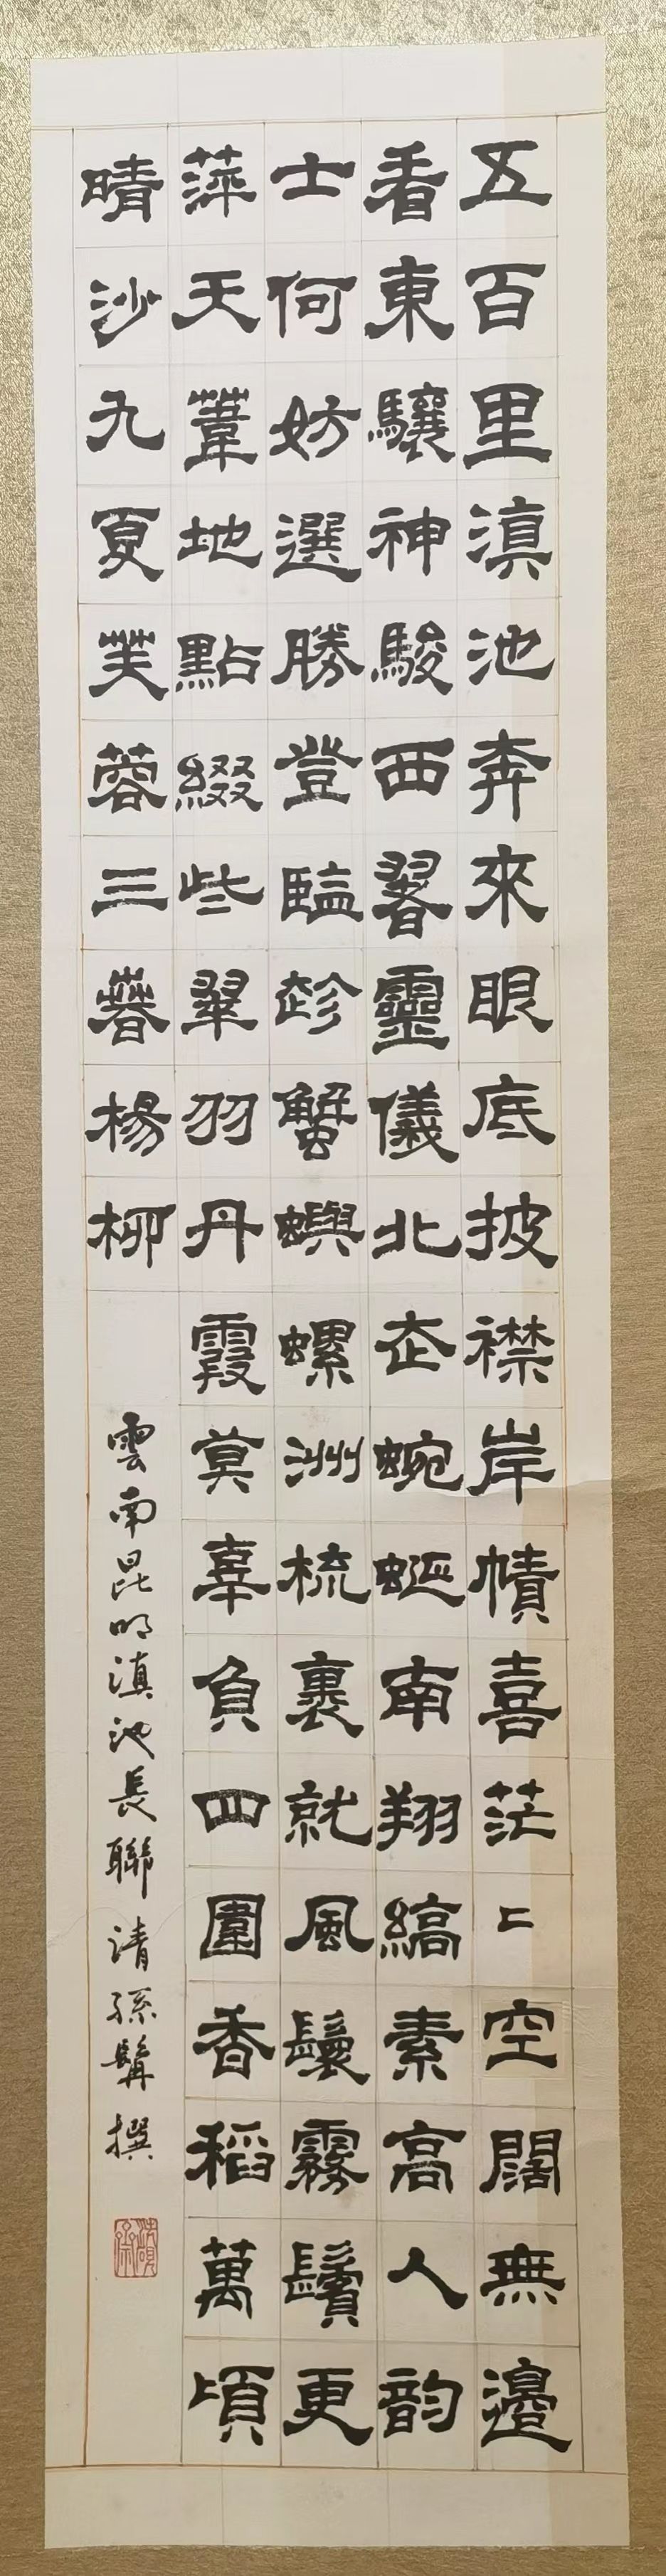 五百里滇池奔來眼底披襟岸幘喜茫〻空闊無邊
看東驤神駿西翥靈儀北走蜿蜒南翔縞素高人韵
士何妨選勝登臨趁蟹嶼螺洲梳裹就風鬟霧鬢更
蘋天葦地點綴些翠羽丹霞莫辜負四圍香稻萬頃
晴沙九夏芙蓉三春楊柳
雲南昆明滇池長聯 清孫髯撰